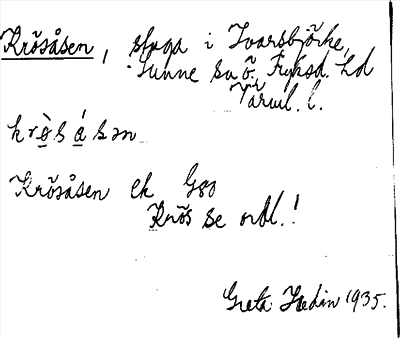 Krösåsen, stuga i Ivarsbjörke,
Sunne sn ö. Fryksd. hd
Värml. l.
krösåsən
Krösåsen ek G80
Krös se ordl.!
Greta Hedin 1935.